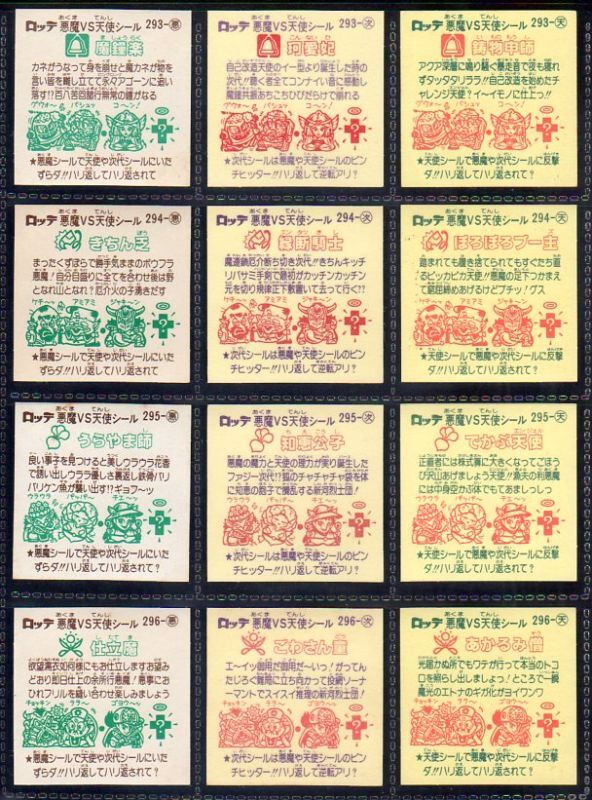 ロッテ 悪魔VS天使シール 293-悪
魔鐘楽
カネがうなって身を崩せと魔力ネガ物を
言い客を騒し立てて永々アゴーンに追い
落す!?百八苦回願行無常の鐘がなる
グワォ〜 バシュッ コ〜ン!
★悪魔シールで天使や次代シールにいた
ずらダ!!ハリ返してハリ返されて?
ロッテ 悪魔VS天使シール 293-次
自己改造天使のイー型より誕生した時の
次代!!聴く者全てコンナイイ音に感動し
魔鐘共振あちこちひびだらけで崩れる
グワォ〜 バシュッ コ〜ン!
★次代シールは悪魔や天使シールのピン
チヒッター!!ハリ返して逆転アリ?
ロッテ 悪魔VS天使シール 293-天
鋳物甲師
アクア深層に鳴り騒ぐ暴走音で夜も寝れ
ずタッタタリラリラ!!自己改革を始めたチ
ャレンジ天使?イ〜イモノに仕上っ!!
グワォ〜 バシュッ コ〜ン!
★天使シールで悪魔や次代シールに反撃
ダ!!ハリ返してハリ返されて?
ロッテ 悪魔VS天使シール 294-悪
きちん芝
まったくずぼらで勝手気ままのボウフラ
悪魔!自分目盛りに全てを合わせ後は野
となれ山となれ?厄介火の子湧きだす
ケチ〜〜 アミアミ ジャキ〜ン
★悪魔シールで天使や次代シールにいた
ずらダ!!ハリ返してハリ返されて
ロッテ 悪魔VS天使シール 294-次
縁断騎士
魔連鎖厄介断ち切き次代!!きちんキッチ
リバサミ三手剣で最初がカッチンカッチン
元を切り規律正下敷置いて去って行く??
ケチ〜〜 アミアミ ジャキ〜ン
★次代シールは悪魔や天使シールのピン
チヒッター!!ハリ返して逆転アリ?
ロッテ 悪魔VS天使シール 294-天
ぼろぼろブー主
踏まれても履き捨てられてもすぐたち直
るピッカピカ天使!悪魔の足下つかまえ
て窮屈締めあげるけどブチッ!グス
ケチ〜〜 アミアミ ジャキ〜ン
★天使シールで悪魔や次代シールに反撃
ダ!!ハリ返してハリ返されて?
ロッテ 悪魔VS天使シール 295-悪
うらやま師
良い事子を見つけると美しウラウラ花香
で誘い出しウラウラ優しさ裏返し鉄骨バリ
バリケン魚が襲い出す!?ギョフ〜ッ
ウラウラ
★悪魔シールで天使や次代シールにいた
ずらダ!!ハリ返してハリ返されて?
ロッテ 悪魔VS天使シール 295-次
知恵公子
悪魔の魔力と天使の理力が実り誕生した
ファジー次代!?狐のチャチャチャ袋を体
に知恵の胞子で構乱する新河烈士団!
ウラウラ
★次代シールは悪魔や天使シールのピン
チヒッター!!ハリ返して逆転アリ?
ロッテ 悪魔VS天使シール 295-天
でかぶ天使
正直者には株式蕪に大きくなってごほう
び沢山あげましょう天使!魚夫の利悪魔
には中身空かぶ体でもてあましちっ
ウラウラ
★天使シールで悪魔や次代シールに反撃
ダ!!ハリ返してハリ返されて?
ロッテ 悪魔VS天使シール 296-悪
仕立魔
欲望寓衣如何様にもお仕立しますお望み
どおり即日仕上の余所行悪魔!悪事にお
ひれフリルを縫い合わせ楽しみましょう
チョッキン ララ〜 ゴヨウ〜
★悪魔シールで天使や次代シールにいた
ずらダ!!ハリ返してハリ返されて?
ロッテ 悪魔VS天使シール 296-次
ごわさん童
エーイッ御用だ御用だ〜いっ!がってん
たじろぐ難用に立ち向かって投網ソーナ
ーマントでスイスイ推理の新河烈士団!
チョッキン ララ〜 ゴヨウ〜
★次代シールは悪魔や天使シールのピン
チヒッター!!ハリ返して逆転アリ?
ロッテ 悪魔VS天使シール 296-天
あかるみ僧
光届かぬ所でもワテが行って本当のトコ
口照らし出しまひょ!ところで一瞬
魔光のエトナのギガ化がヨイワンワ
チョッキン ララ〜 ゴヨウ〜
★天使シールで悪魔や次代シールに反撃
ダ!!ハリ返してハリ返されて?